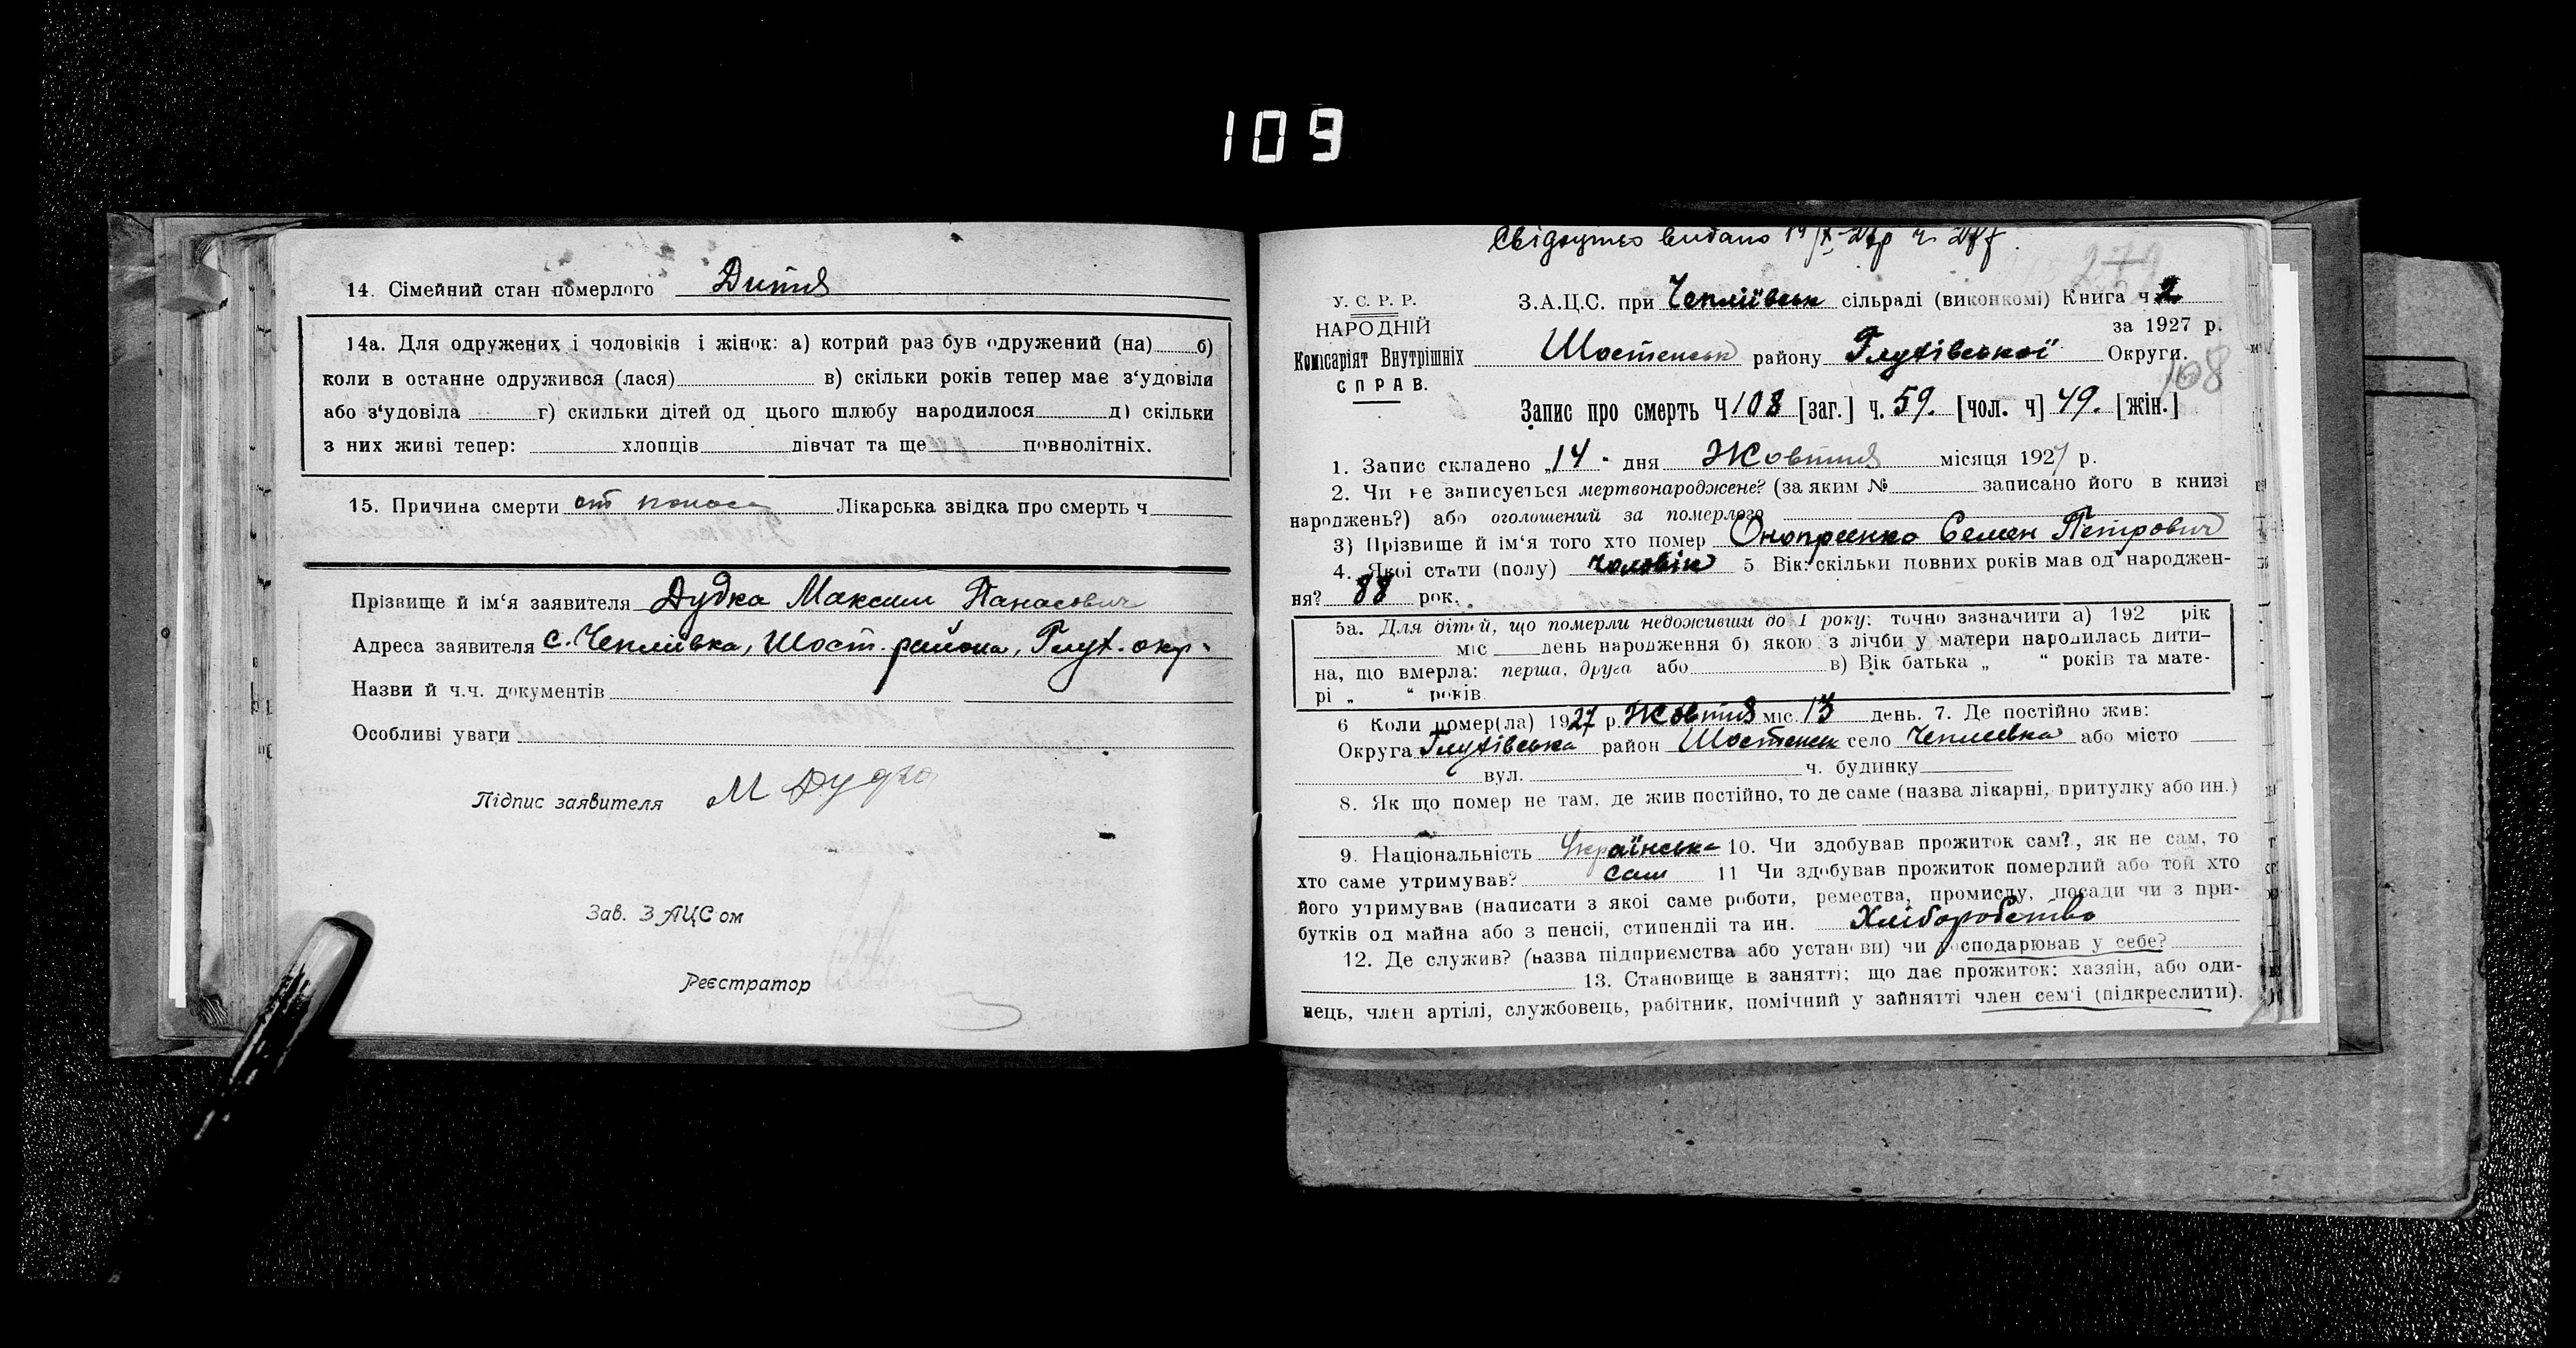 109
14. Сімейний стан померлого Дитя
14а. Для одружених і чоловіків і жінок: а) котрий раз був одружений (на) б)
коли в останне одружився (лася) в) скільки років тепер має з‘удовіли
або з‘удовіла г) скильки дітей од цього шлюбу народилося д) скільки
з них живі тепер: хлопців дівчат та ще повнолітніх.
15. Причина смерти от поноса Лікарська звідка про смерть ч
Прізвище й ім‘я заявителя Дудка Максим Панасович
Адреса заявителя с. Чепліївка, Шост. района, Глух. окр.
Назви й ч.ч. документів
Особливі уваги
Підпис заявителя М Дудка
Зав. ЗАЦСом
Реєстратор
Свідоцтво видано
279
У. С. Р. Р.
НАРОДНІЙ
Комісаріят Внутрішніх
СПРАВ.
З.А.Ц.С. при Чепліївськ сільраді (виконкомі) Книга ч 2
за 1927 р.
Шостенськ району Глухівської Округи.
108
Запис про смерть Ч 108 [заг.] ч. 59. [чол. ч] 49. [жін.]
1. Запис складено „14“ дня Жовтня місяця 1927 р.
2. Чи не записується мертвонароджене? (за яким № записано його в книзі
народжень?) або оголошений за померлого
3) Прізвище й ім‘я того хто помер Онопреенко Семен Петрович
4. Якої стати (полу) чоловік 5 Вік: скільки повних років мав од народжен-
ня? 88 рок.
5а. Для дітей, що померли недоживши до 1 року: точно зазначити а) 192 рік
міс день народження б) якою з лічби у матери народилась дити-
на, що вмерла: перша, друга або в) Вік батька „ “ років та мате-
рі „ “ років
6 Коли помер(ла) 1927 р. Жовтня міс. 13 день. 7. Де постійно жив:
Округа Глухівська район Шостенск село Чеплеевка або місто
вул. ч. будинку
8. Як що помер не там, де жив постійно, то де саме (назва лікарні, притулку або ин.)
9. Національність Українська 10. Чи здобував прожиток сам?, як не сам, то
хто саме утримував? сам 11 Чи здобував прожиток померлий або той хто
його утримував (написати з якої саме роботи, ремества, промислу, посади чи з при-
бутків од майна або з пенсії, стипендії та ин. Хліборобство
12. Де служив? (назва підприємства або установи) чи господарював у себе?
13. Становище в занятті; що дає прожиток: хазяїн, або оди-
нець, член артілі, службовець, рабітник, помічний у зайнятті член сем‘ї (підкреслити).